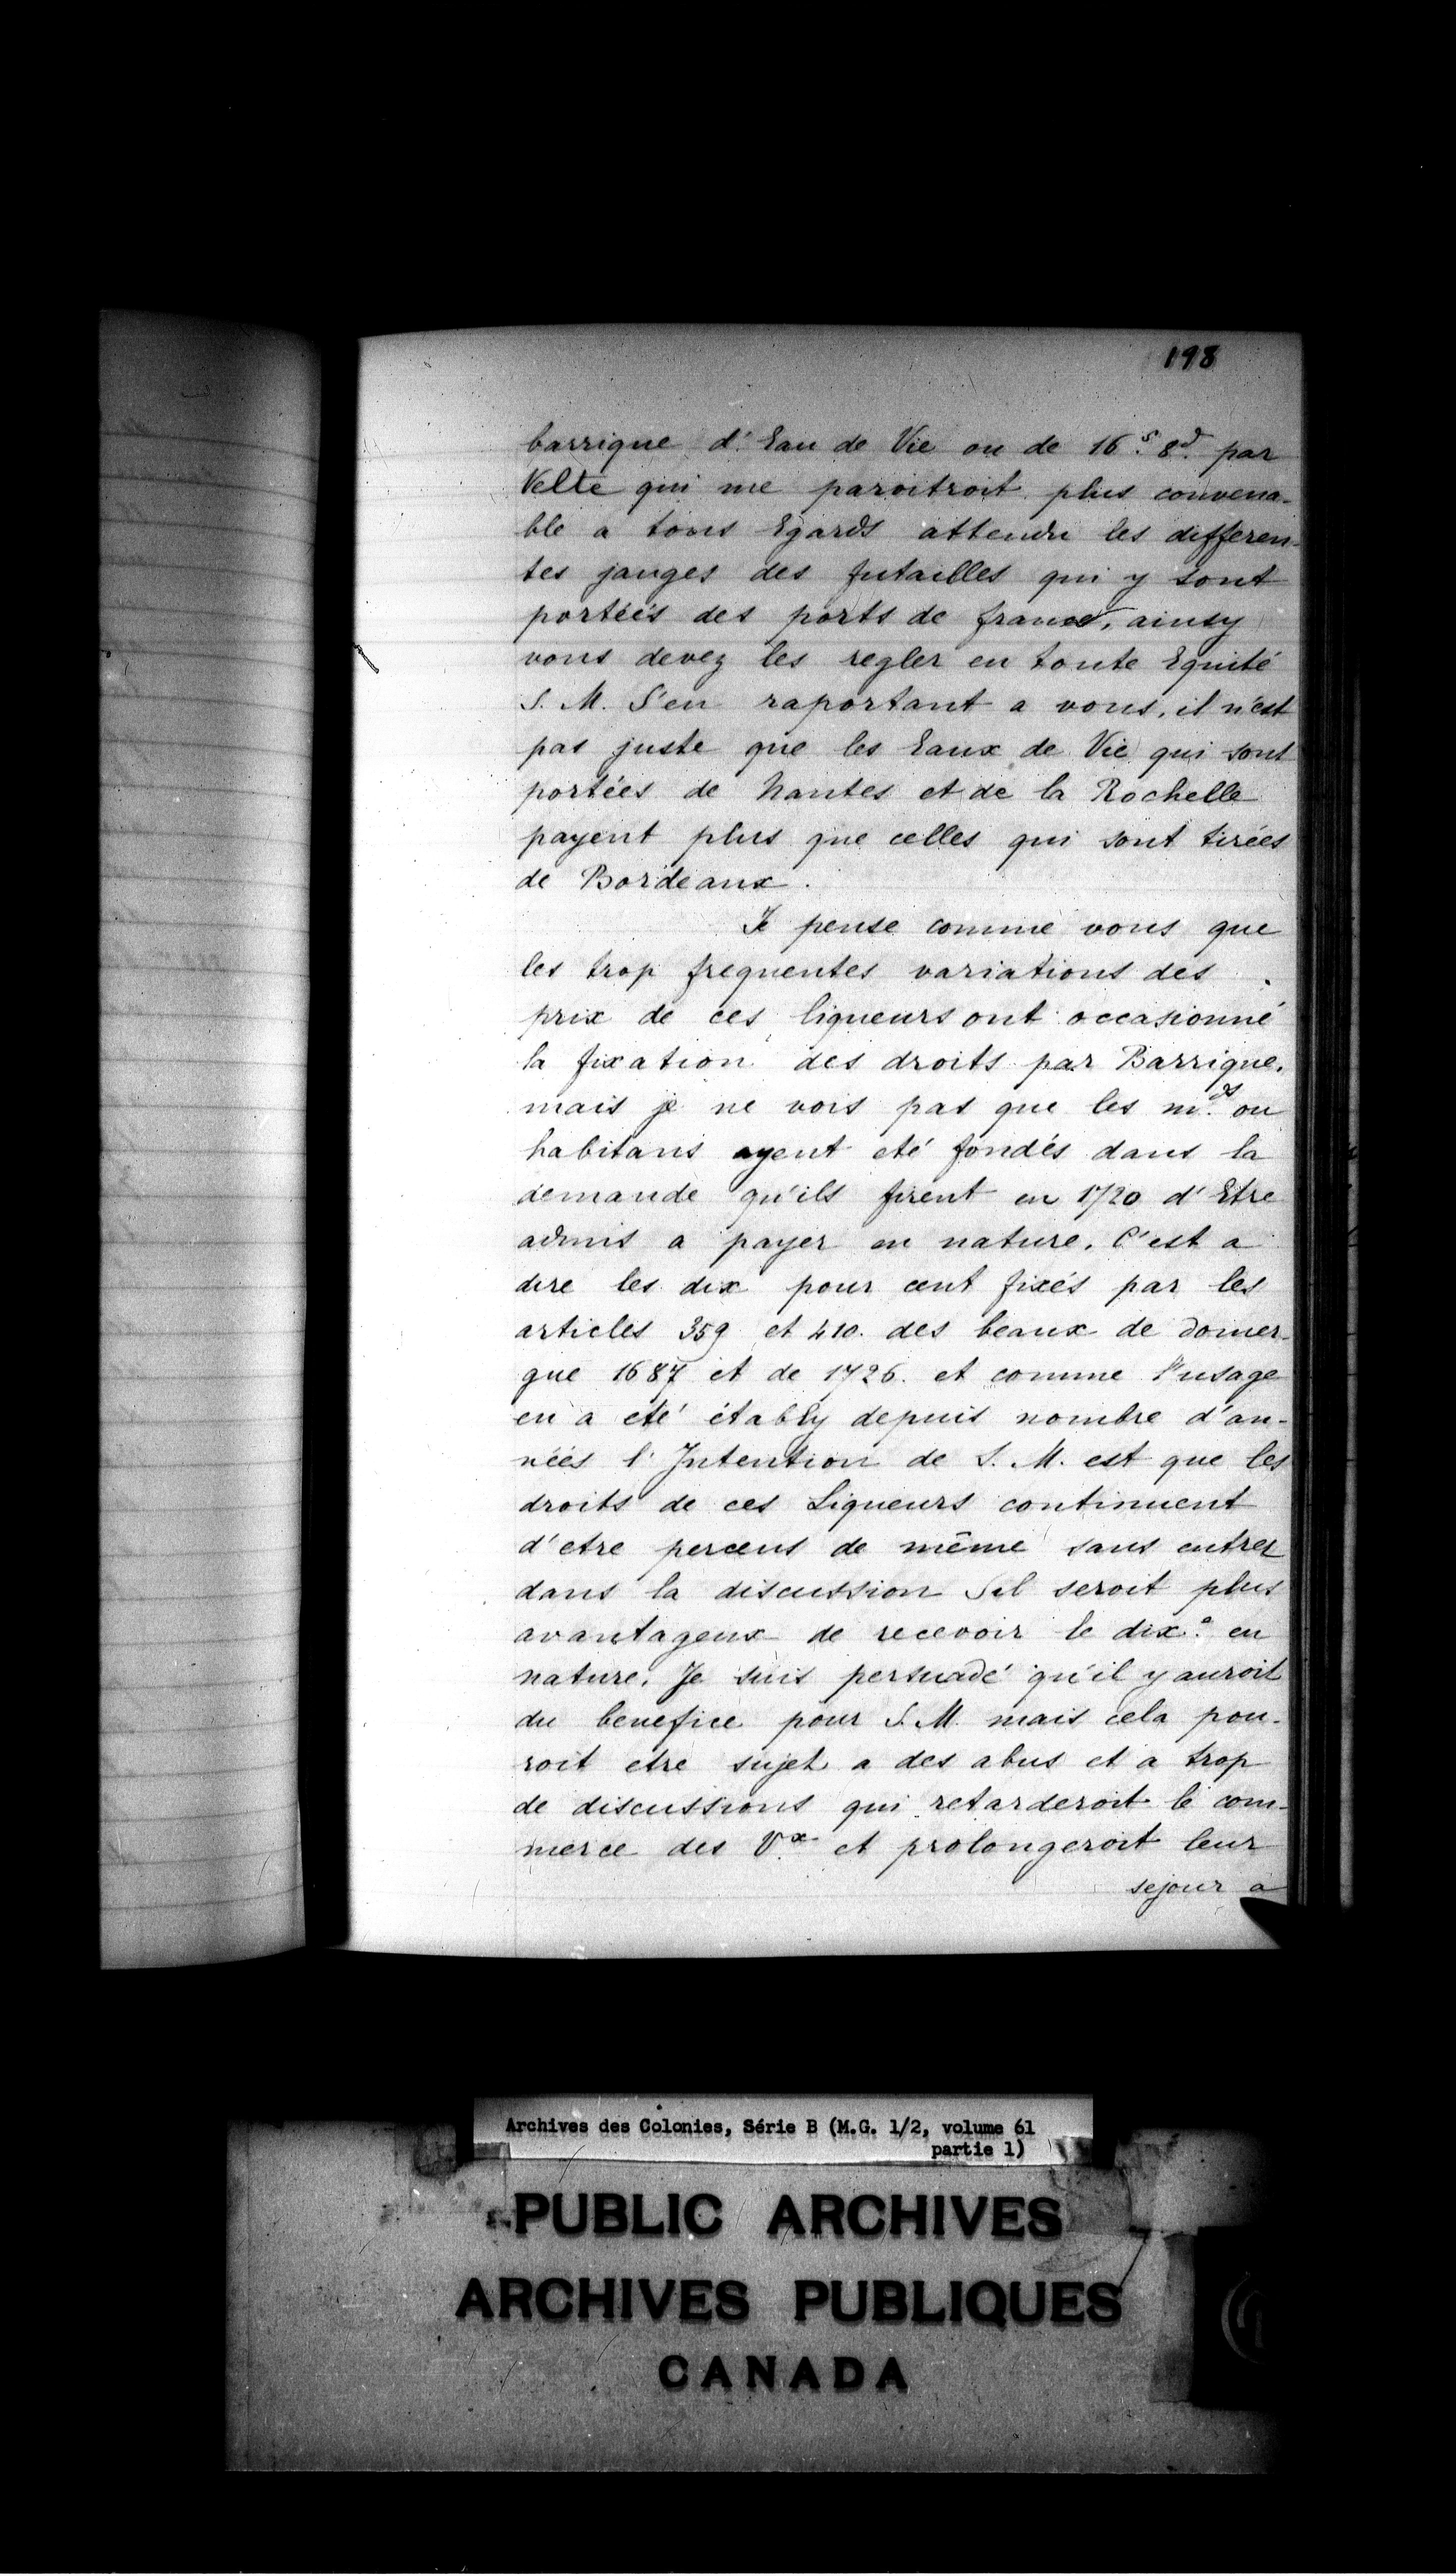 198
barrique d'Eau de Vie ou de 16.s 8.d par
Velte qui me paroitroit plus convena-
ble a tous Egards attendu les differen-
tes jauges des futailles qui y sont
portéés des ports de france, ainsy
vous devez les regler en toute Equité
S. M. S'en raportant a vous, il n'est
pas juste que les Eaux de Vie qui sont
portées de Nantes et de la Rochelle
payent plus que celles qui sont tirées
de Bordeaux.
Je pense comme vous que
les trop frequentes variations des
prix de ces liqueurs ont occasionné
la fixation des droits par Barrique.
mais je ne vois pas que les m.ds ou
habitans ayent eté fondés dans la
demande qu'ils firent en 1720 d'Etre
admis a payer en nature. C'est a
dire les dix pour cent fixés par les
articles 359 et 410. des beaux de Domer-
gue 1687 et de 1726. et comme l'usage
en a eté étably depuis nombre d'an-
néés l'Intention de S. M. est que les
droits de ces Liqueurs continuent
d'etre perceus de même sans entrer
dans la discussion Sil seroit plus
avantageux de recevoir le dix.e en
nature. Je suis persuadé qu'il y auroit
du benefice pour S. M. mais cela pou-
roit etre sujet a des abus et a trop
de discussions qui retarderoit le com-
merce des V.x et prolongeroit leur
sejour a
Archives des Colonies, Série B (M.G. 1/2, volume 61
partie 1)
PUBLIC ARCHIVES
ARCHIVES PUBLIQUES
CANADA